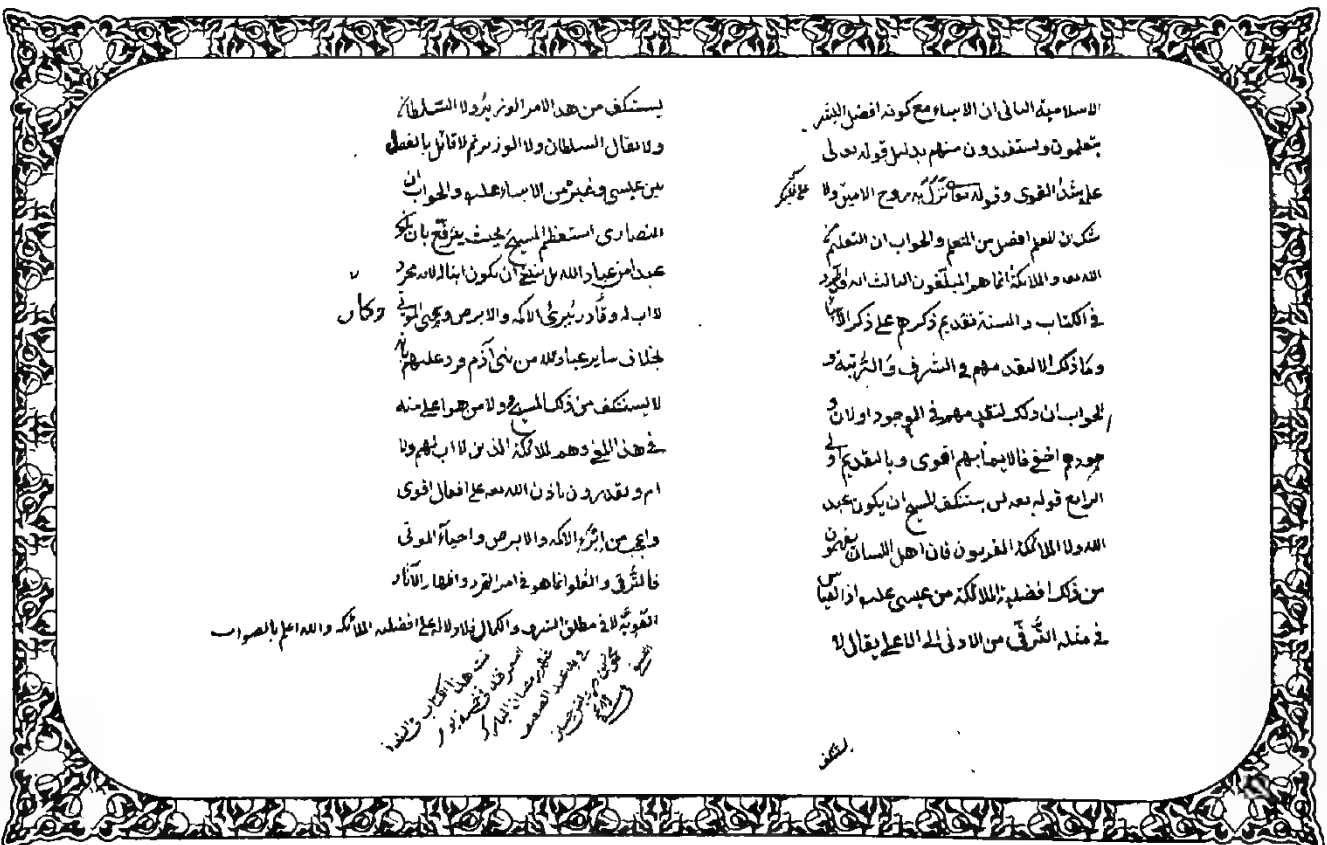 الاسلامية الثانى ان الانبياء مع كونه افضل البشر
يتعلمون ويستفيدون منهم بدليل قوله تعالى
علمه شديد القوى وقوله تعا نزل به روح الامين ولا
على قلبك
شك ان المعلم افضل من المتعلم والجواب ان التعليم من
الله تعه والملائكة انما هو المبلغون الثالث انه قد اطرد
فى الكتاب والسنة تقديم ذكرهم على ذكر الانبيا
وما ذلك الا لتقدمهم فى الشرف والرتبة و
الجواب ان ذلك لتقدمهم فى الوجود او لان و
جودهم اخفى فالايمان بهم اقوى وبالتقديم اولى
الرابع قوله تعه لن يستنكف المسيح ان يكون عبد
الله ولا الملائكة المقربون فان اهل اللسان يفهمون
من ذلك افضلية الملائكة من عيسى عليه اذ القياس
فى مثله الترقى من الادنى الى الاعلى يقال لا
يستنكف
يستنكف من هذ الامر الوزير ولا السلطان
ولا يقال السلطان ولا الوزير ثم لا قائل بالفصل
بين عيسى وغيره من الانبياء عليه والجواب ان
النصارى استعظم المسيح بحيث يترفع بان يكو
عبدا من عباد الله بل ينبغى ان يكون ابنا له لانه مجرد
لا اب له وقادر يبرئ الاكمه والابرص ويحيى الموتى
وكان
بخلاف ساير عباد لله من بنى آدم فرد عليهم بانه
لا يستنكف من ذلك المسيح ولا من هو اعلى منه
فى هذا المعنى وهم الملائكة الذين لا اب لهم ولا
ام ويقدرون باذن الله تعه على افعال اقوى
واعجب من ابراء الاكمه والابرص واحياء الموتى
فالترقى والعلو انما هو فى امر التجرد واظهار الآثار
القوية لا فى مطلق الشرف والكمال فلا دلالة على افضلية الملائكه والله اعلم بالصواب
تمت هذا الكتاب
شهر رمضان المبارك